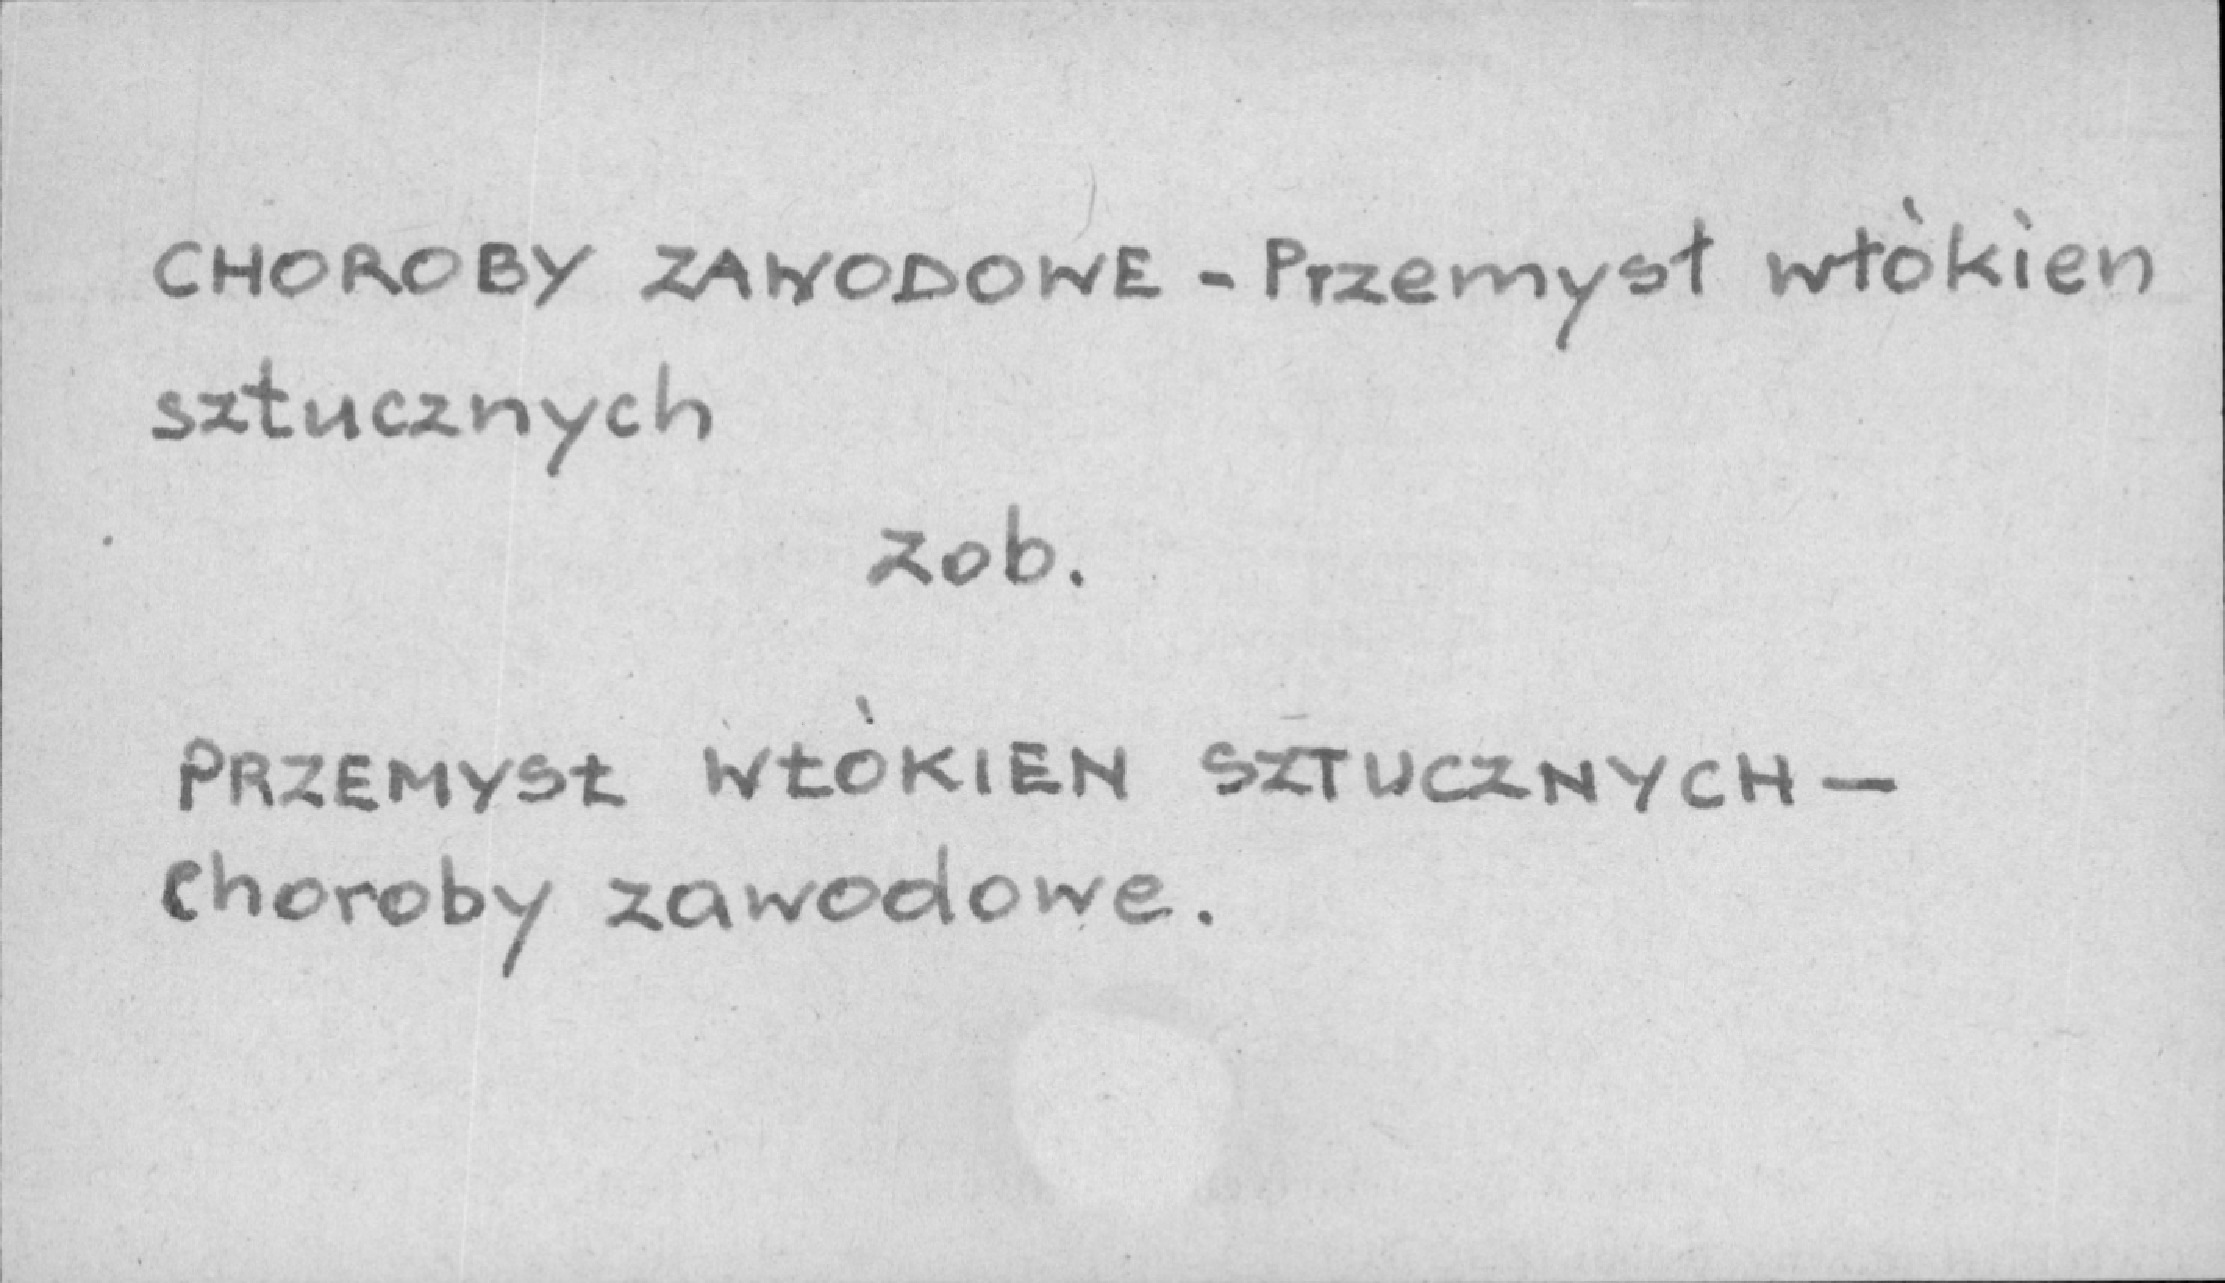 CHOROBY ZAWODOWE - Przemysł włókien
sztucznych
zob.
PRZEMYSŁ WŁÓKIEN SZTUCZNYCH —
choroby zawodowe.